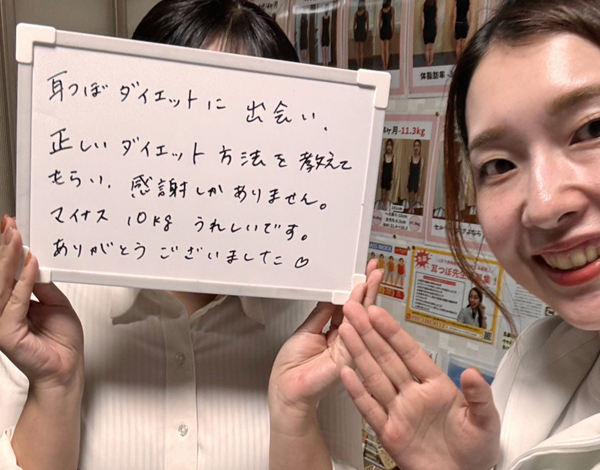 耳つぼダイエットに 出会い、
正しいダイエット方法を教えて
もらい、感謝しかありません。
マイナス 10kg うれしいです。
ありがとうございました♡
体脂肪率
ヶ月-11.3kg